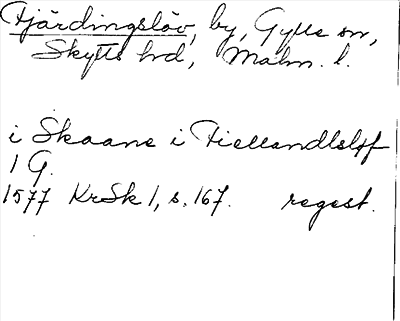 Fjärdingslöv, by, Gylle sn,
Skytts hrd, Malm. l.
i Skaane i Fiellandlsløf
1 G.
1577 KrSk 1, s. 167. regest.